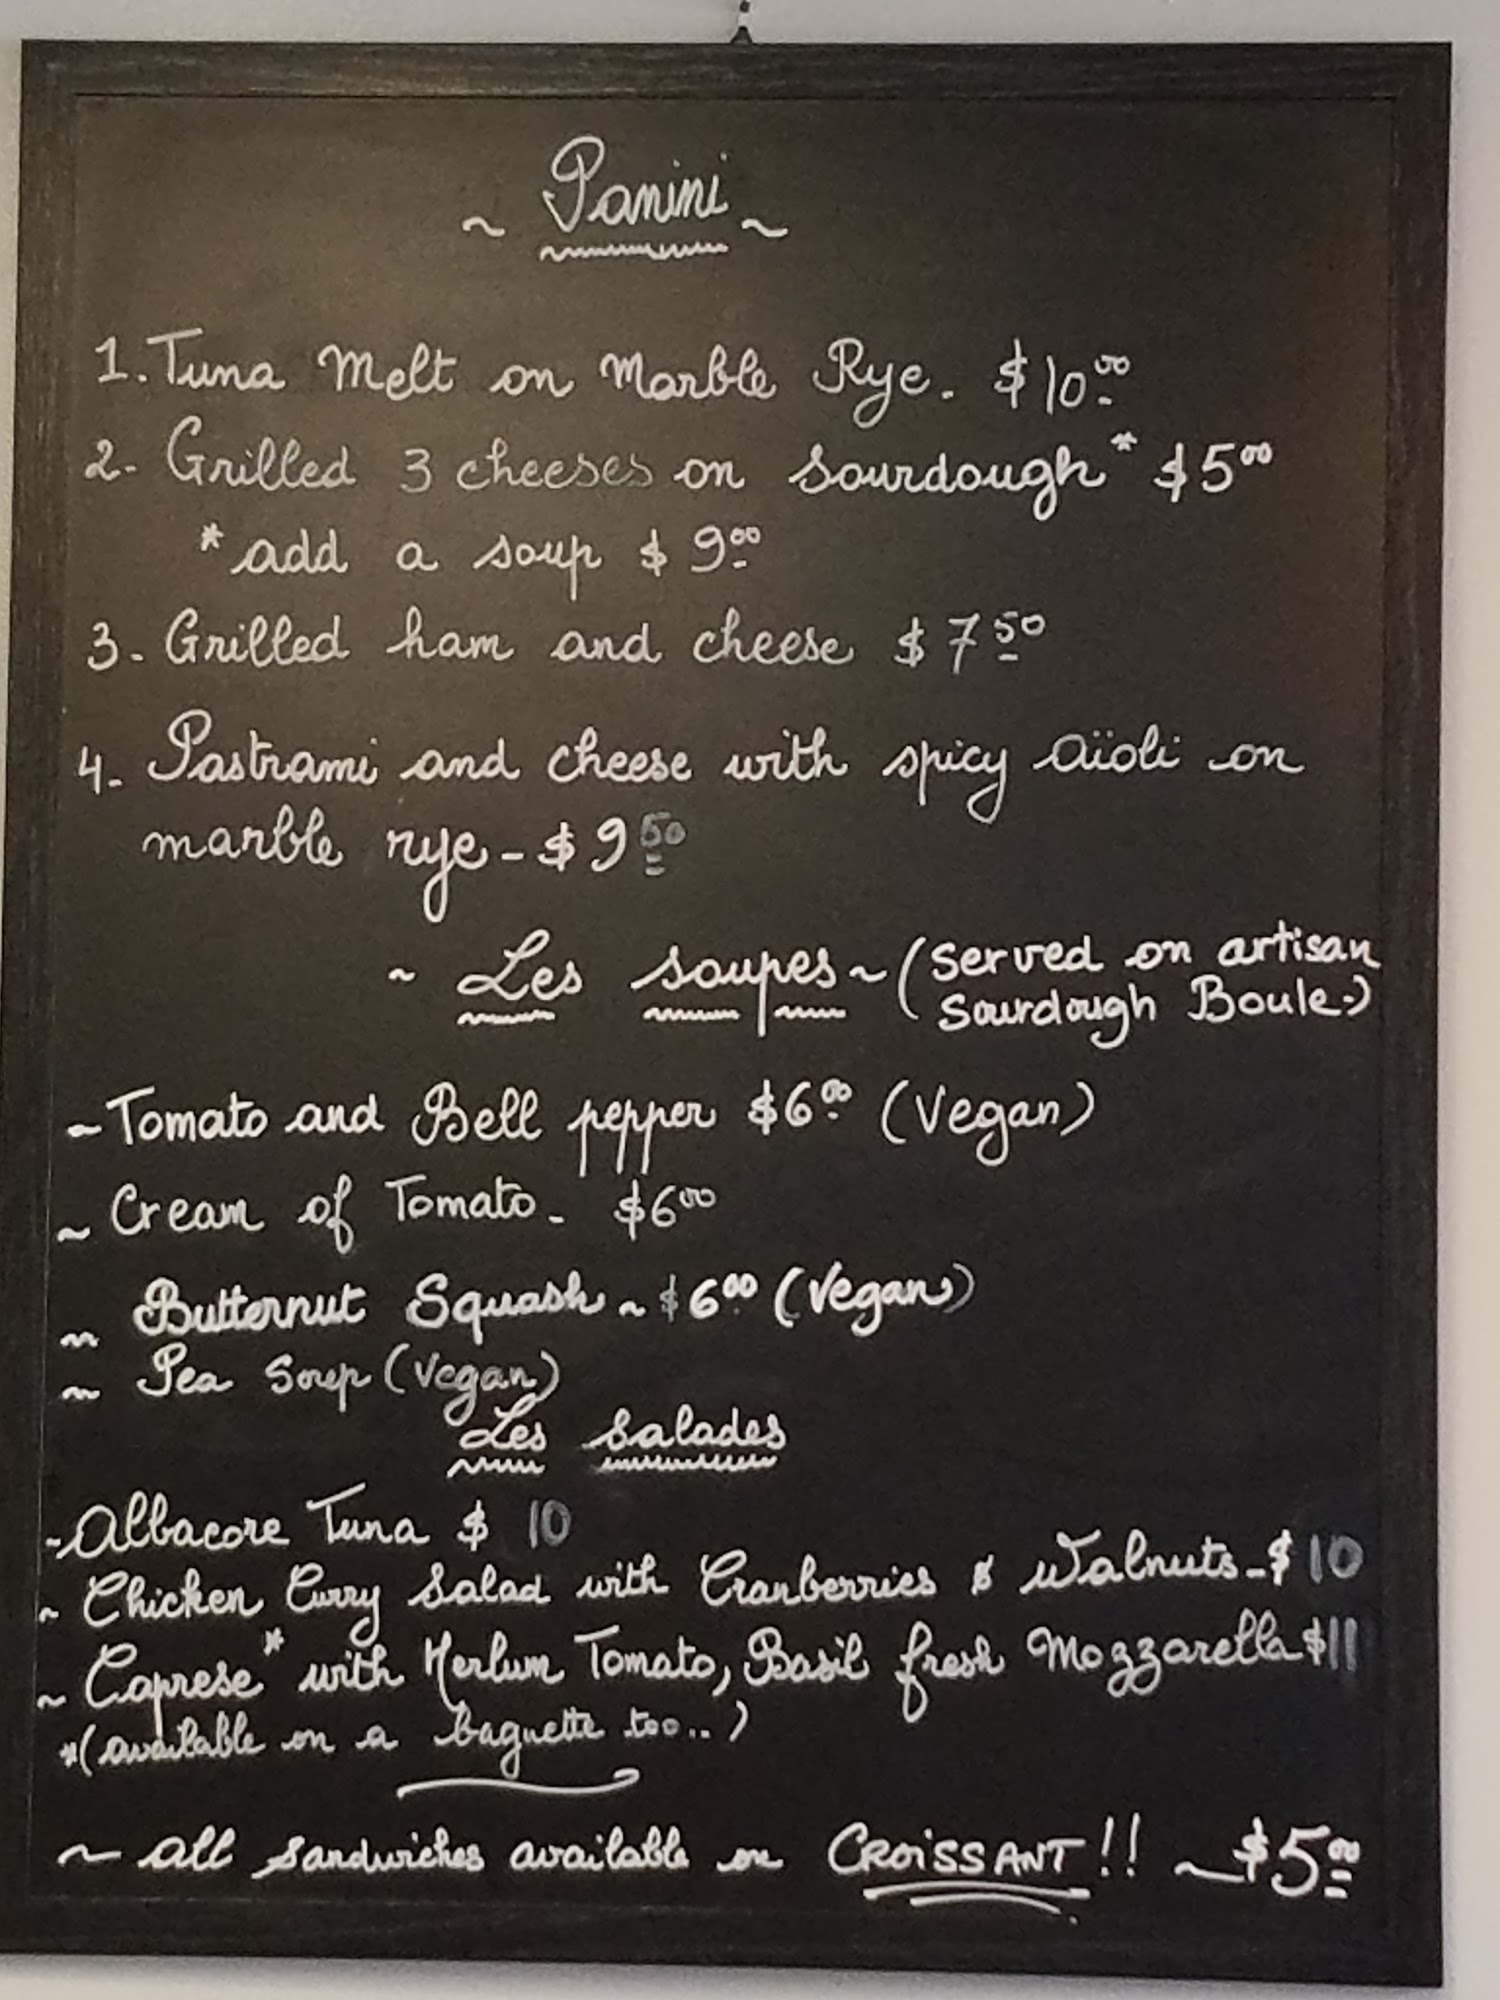 ~ Panini ~
1. Tuna Melt on Marble Rye. $10.00
2- Grilled 3 cheeses on Sourdough* $5.00
*add a soup $9.00
3- Grilled ham and cheese $7.50
4- Pastrami and cheese with spicy aïoli on
marble rye - $9.50
~ Les soupes ~ (Served on artisan
Sourdough Boule.)
~ Tomato and Bell pepper $6.00 (Vegan)
~ Cream of Tomato - $6.00
~ Butternut Squash ~ $6.00 (Vegan)
~ Pea Soup (Vegan)
Les salades
- Albacore Tuna $ 10
~ Chicken Curry Salad with Cranberries & Walnuts - $10
~ Caprese* with Herlum Tomato, Basil fresh Mozzarella $11
*(available on a baguette too..)
~ all sandwiches available on CROISSANT!! ~ $5.00